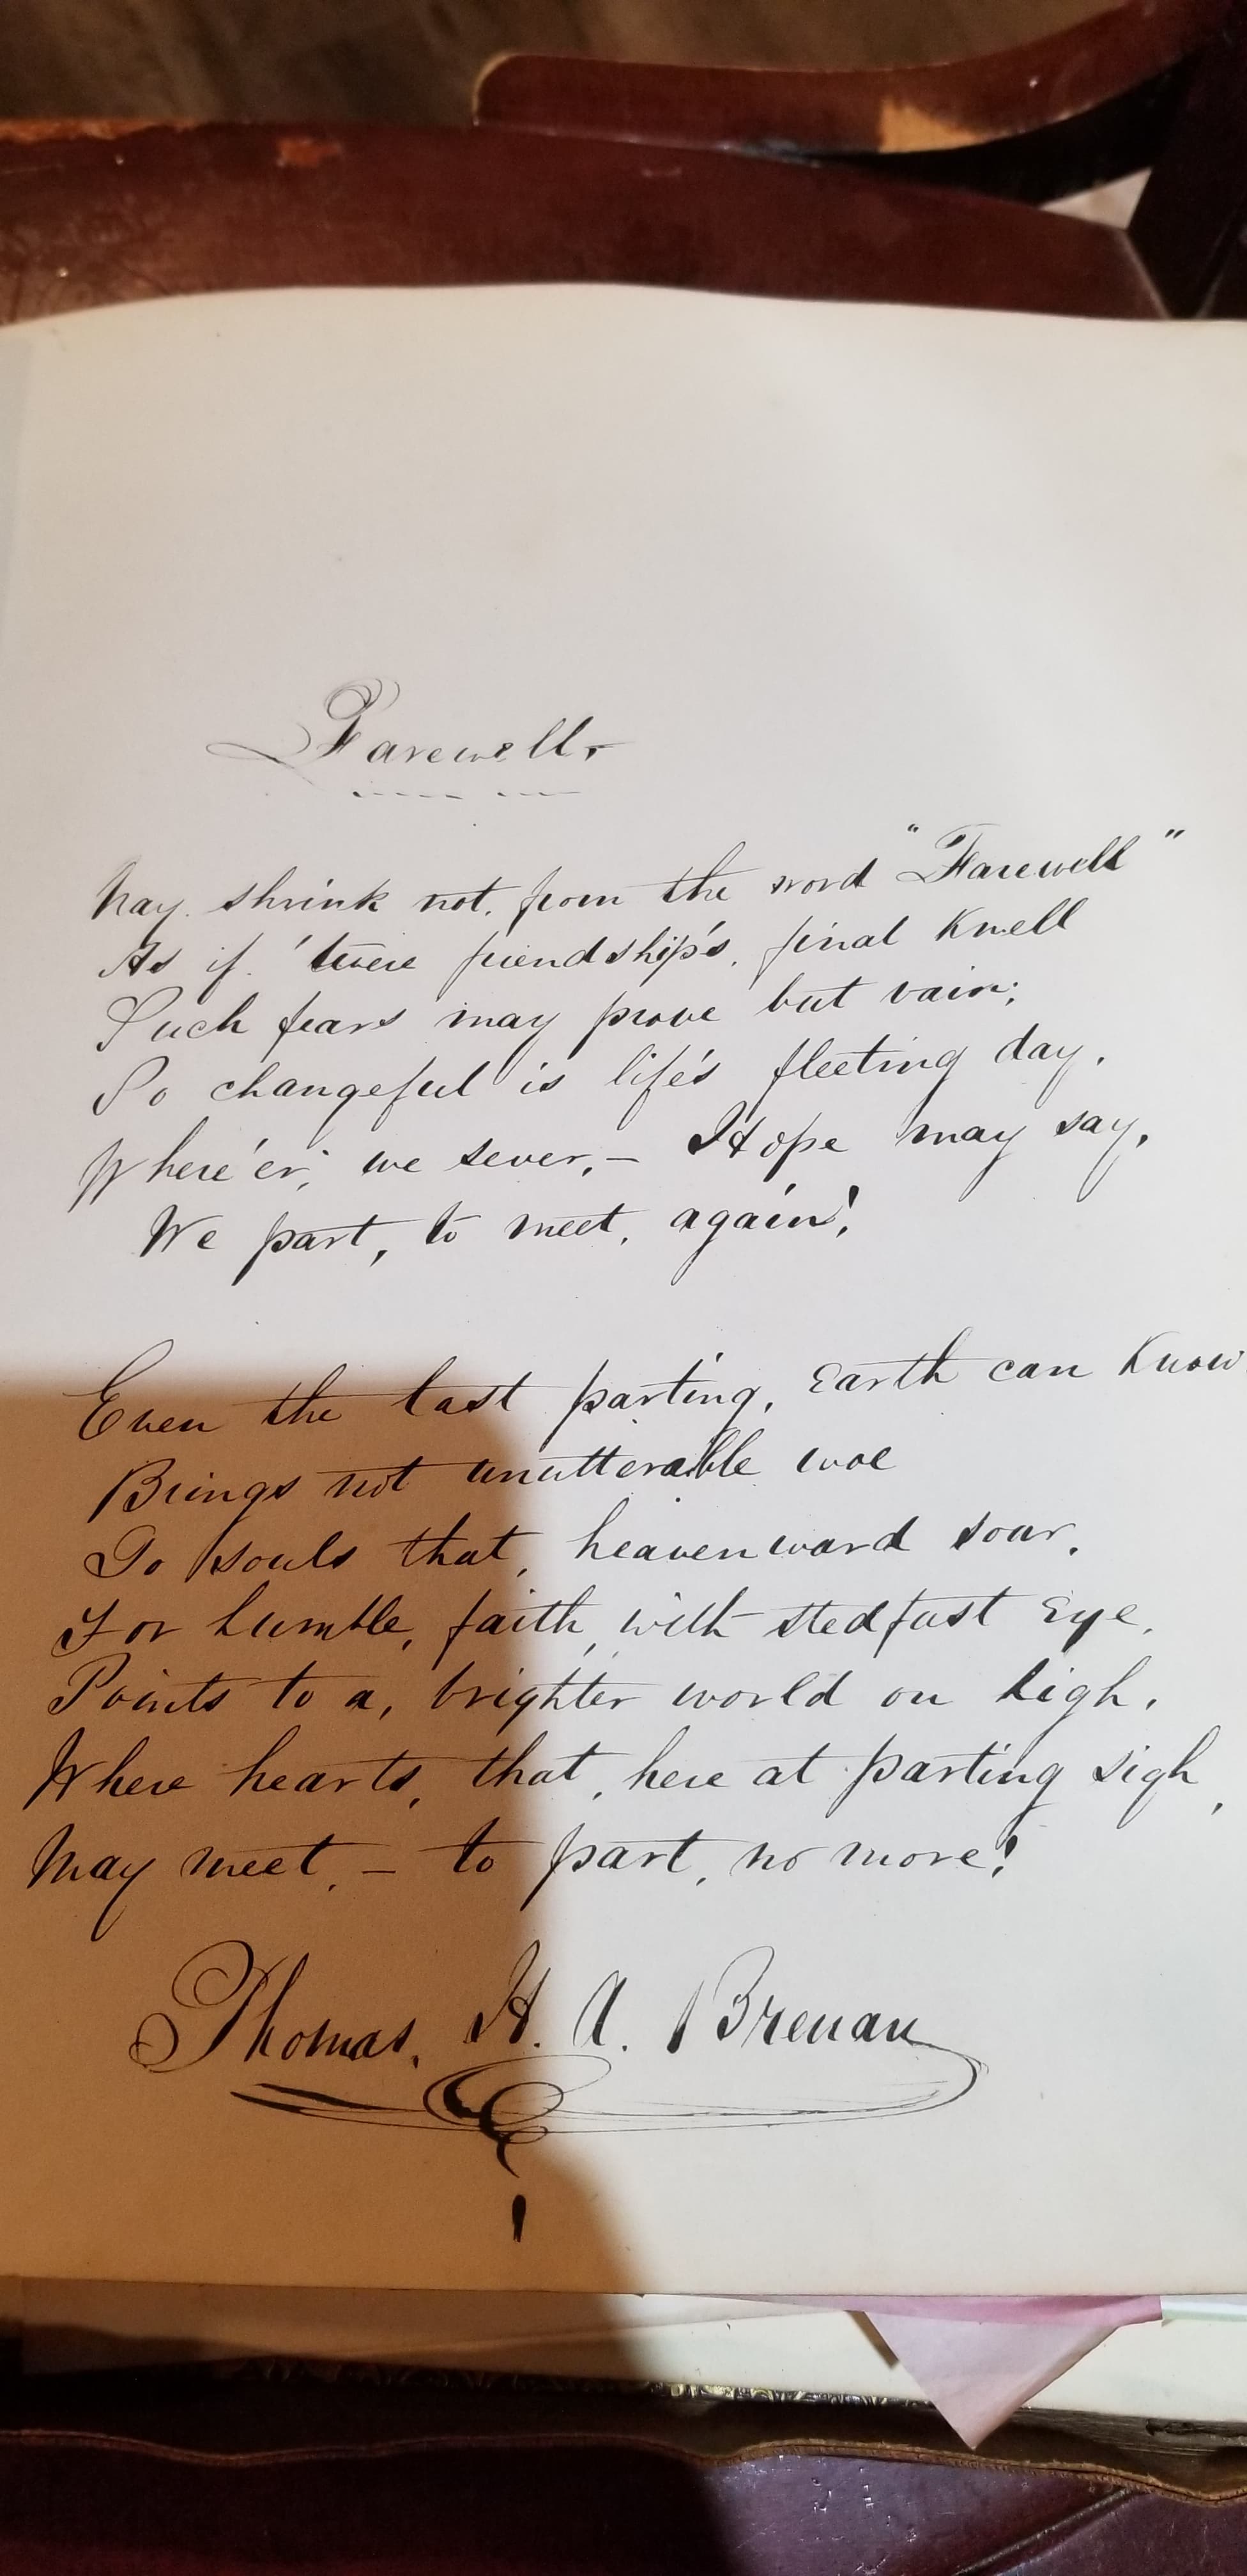 Farewell.
Nay. shrink not. from the word "Farewell"
As if. 'twere friendship's. final Knell
Such fears may prove but vain;
So changeful is life's fleeting day.
Where'er; we sever, - Hope may say,
We part, to meet. again!
Even the last parting, Earth can Know
Brings not unutterable woe
To souls that, heavenward soar.
For humble, faith, with stedfast Eye.
Points to a, brighter world on high.
Where hearts, that, here at parting sigh,
May meet. - to part, no more!
Thomas. H. A. Brenan